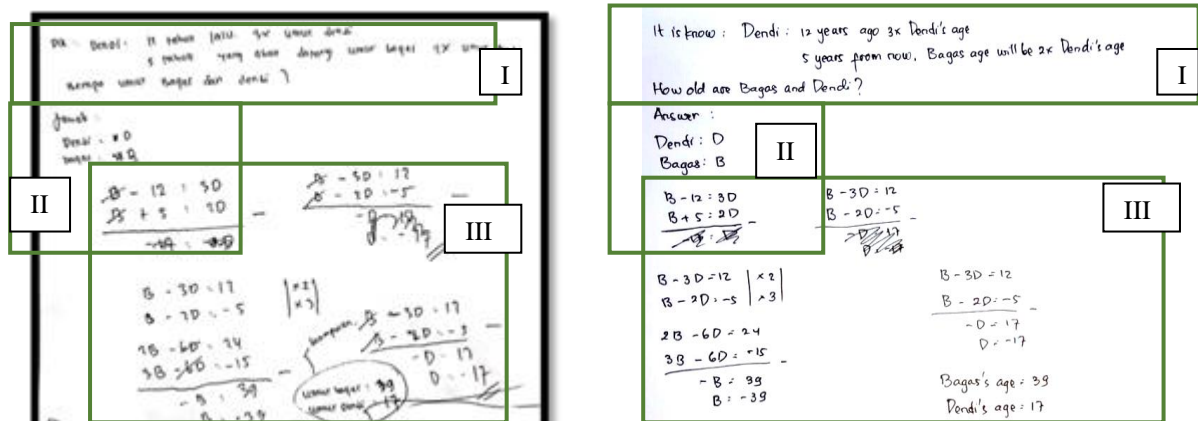 Dik : Dendi : 12 tahun lalu 3x umur dendi
5 tahun yang akan datang umur bagas 2x umur
Berapa umur Bagas dan dendi ?
I
Jawab :
Dendi : D
Bagas :
II
B - 12 : 3D
B + 5 : 2D
B - 3D : 12
B - 2D : -5
III
B - 3D = 12 | x2 |
B - 2D = -5 | x3 |
2B - 6D = 24
3B - 6D = -15
- B : 39
B : -39
B - 3D = 12
B - 2D = -5
- D = 17
D = -17
umur bagas : 39
umur Dendi : 17
It is know : Dendi : 12 years ago 3x Dendi's age
5 years from now, Bagas age will be 2x Dendi's age
How old are Bagas and Dendi ?
I
Answer :
Dendi : D
Bagas : B
II
B - 12 : 3D
B + 5 : 2D
B - 3D = 12
B - 2D = -5
III
B - 3D = 12 | x2 |
B - 2D = -5 | x3 |
2B - 6D = 24
3B - 6D = -15
- B = 39
B = -39
B - 3D = 12
B - 2D = -5
- D = 17
D = -17
Bagas's age : 39
Dendi's age : 17